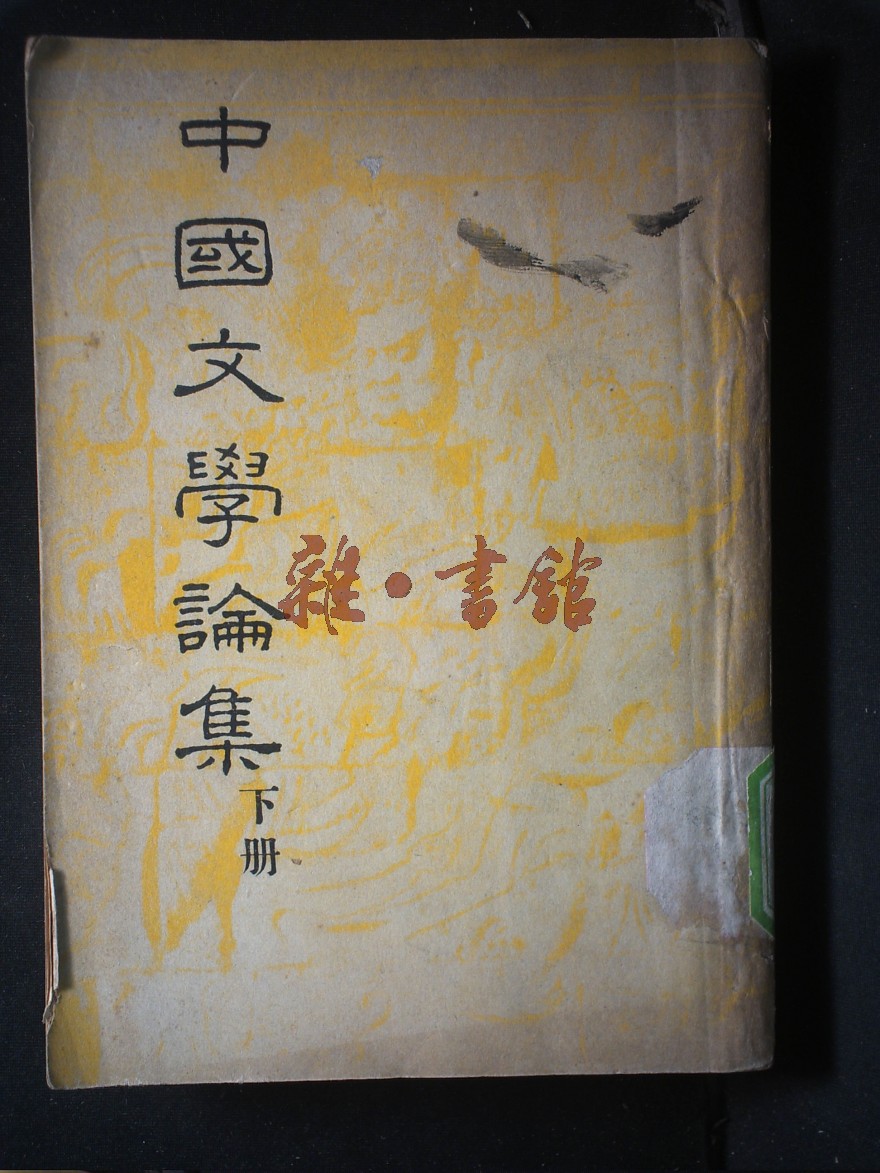 中國文學論集
下册
雜·書館